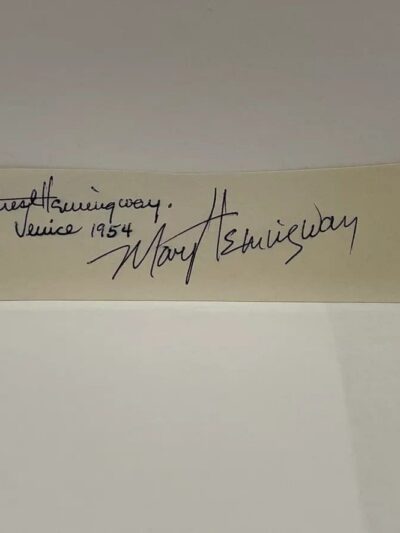 nest Hemingway.
Venice 1954
Mary Hemingway